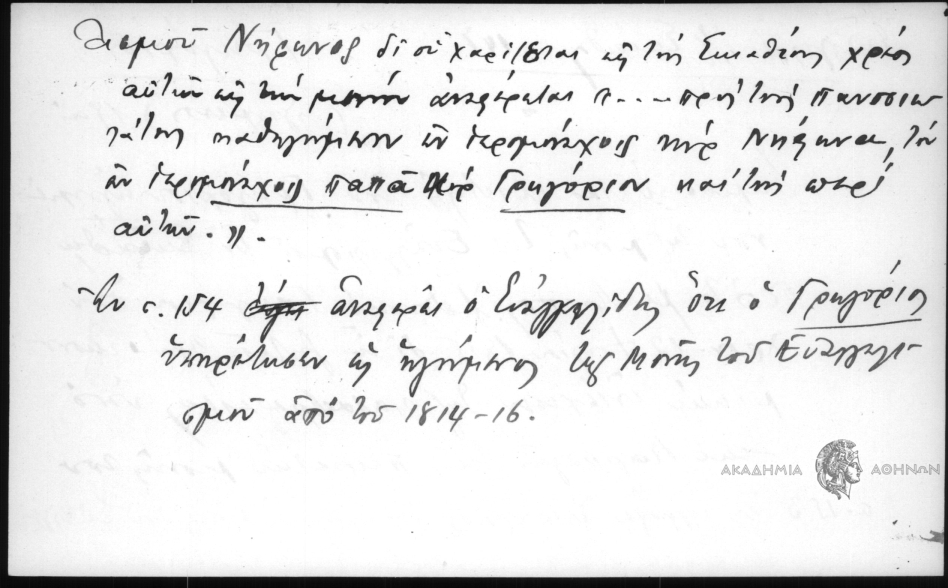 λισμοῦ Νήφωνος δι' οὗ χαρίζεται εἰς τοὺς Σκιαθίους χρέος
αὐτῶν εἰς τὴν μονὴν ἀναφέρεται ... πρὸς τοὺς πανοσιω
τάτους καθηγούμενον ἐν ἱερομονάχοις κὺρ Νήφωνα, τὸν
ἐν ἱερομονάχοις παπᾶ κὺρ Γρηγόριον καὶ τοὺς περὶ
αὐτῶν.».
Ἐν σ. 154 ἀναφέρει ὁ Εὐαγγελίδης ὅτι ὁ Γρηγόριος
ὑπηρέτησεν ὡς ἡγούμενος τῆς Μονῆς τοῦ Εὐαγγελι-
σμοῦ ἀπὸ τοῦ 1814-16.
ΑΚΑΔΗΜΙΑ ΑΘΗΝΩΝ